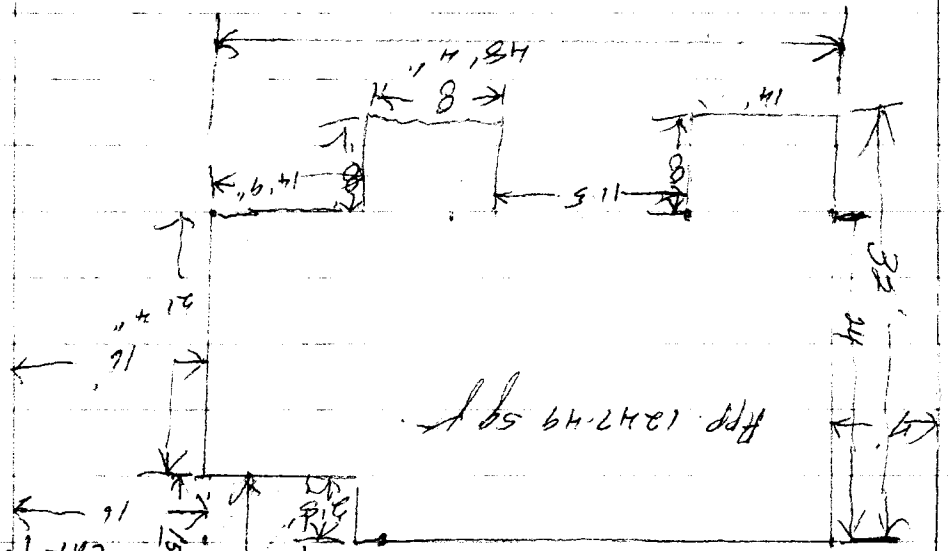 48' 4"
8
14'
8'
14' 9"
11.5
8
32'
21' 4"
24
16'
App. 1247.49 Sq ft.
16